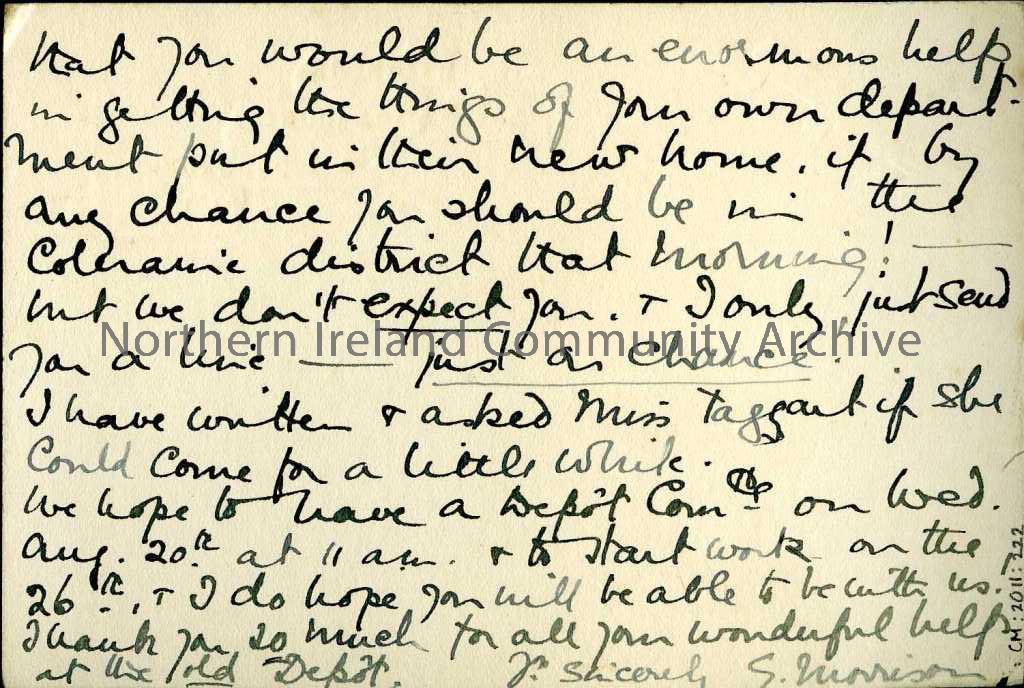 that you would be an enormous help
in getting the things of your own depart-
ment put in their new home, if by
any chance you should be in the
Coleraine district that morning! —
but we don't expect you. & I only just send
you a line — just on chance.
Northern Ireland Community Archive
I have written & asked Miss Taggart if she
could come for a little while.
We hope to have a Depôt Comtee on Wed.
Aug. 20th at 11 a.m. & to start work on the
26th, & I do hope you will be able to be with us.
Thank you so much for all your wonderful help
at the old Depôt. Yr. sincerely S. Morrison
CM:2011:222